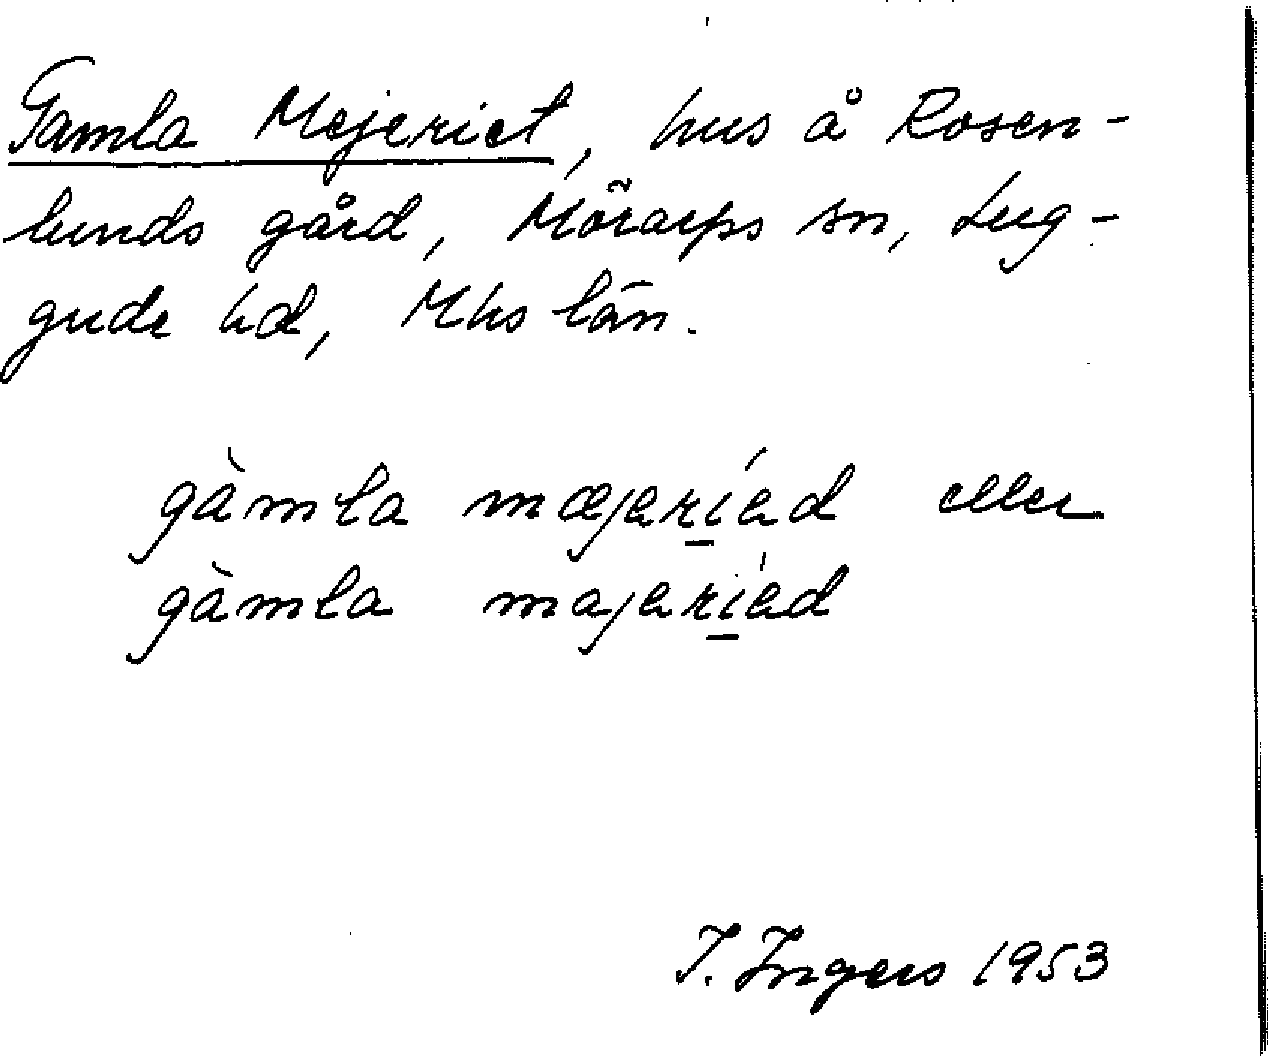 Gamla Mejeriet, hus å Rosen-
lunds gård, Mörarps sn, Lug-
gude hd, Mhs län.
gàmla mæjeríed eller
gàmla majeríed
I. Ingers 1953